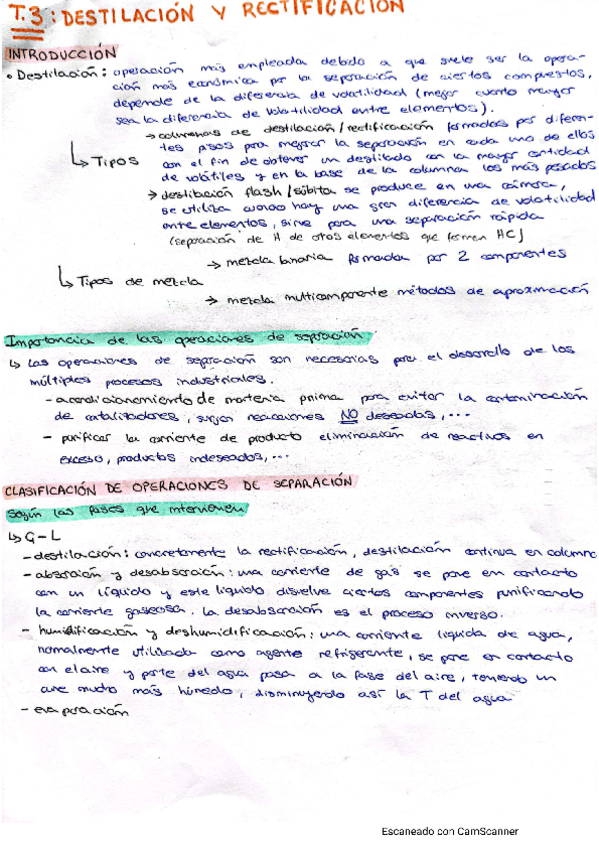 T.3: DESTILACIÓN Y RECTIFICACIÓN
INTRODUCCIÓN
• Destilación: operación más empleada debido a que suele ser la opera-
ción más económica por la separación de ciertos compuestos,
depende de la diferencia de volatilidad (mejor cuanto mayor
sea la diferencia de volatilidad entre elementos).
→ columnas de destilación/rectificación formadas por diferen-
↳ Tipos
tes pisos para mejorar la separación en cada uno de ellos
con el fin de obtener un destilado con la mayor cantidad
de volátiles y en la base de la columna los más pesados
→ destilación flash/súbita se produce en una cámara,
se utiliza cuando hay una gran diferencia de volatilidad
entre elementos, sirve para una separación rápida
(separación de H de otros elementos que forman HC)
→ mezcla binaria formada por 2 componentes
↳ Tipos de mezcla
→ mezcla multicomponente métodos de aproximación
Importancia de las operaciones de separación
↳ Las operaciones de separación son necesarias para el desarrollo de los
múltiples procesos industriales.
- acondicionamiento de materia prima para evitar la contaminación
de catalizadores, surjan reacciones NO deseadas, ...
- purificar la corriente de producto eliminación de reactivos en
exceso, productos indeseados, ...
CLASIFICACIÓN DE OPERACIONES DE SEPARACIÓN
Según las fases que intervienen
↳ G-L
- destilación: concretamente la rectificación, destilación continua en columna
- absorción y desabsorción: una corriente de gas se pone en contacto
con un líquido y este líquido disuelve ciertos componentes purificando
la corriente gaseosa. La desabsorción es el proceso inverso.
- humidificación y deshumidificación: una corriente líquida de agua,
normalmente utilizada como agente refrigerante, se pone en contacto
con el aire y parte del agua pasa a la fase del aire, teniendo un
aire mucho más húmedo, disminuyendo así la T del agua
- evaporación
Escaneado con CamScanner